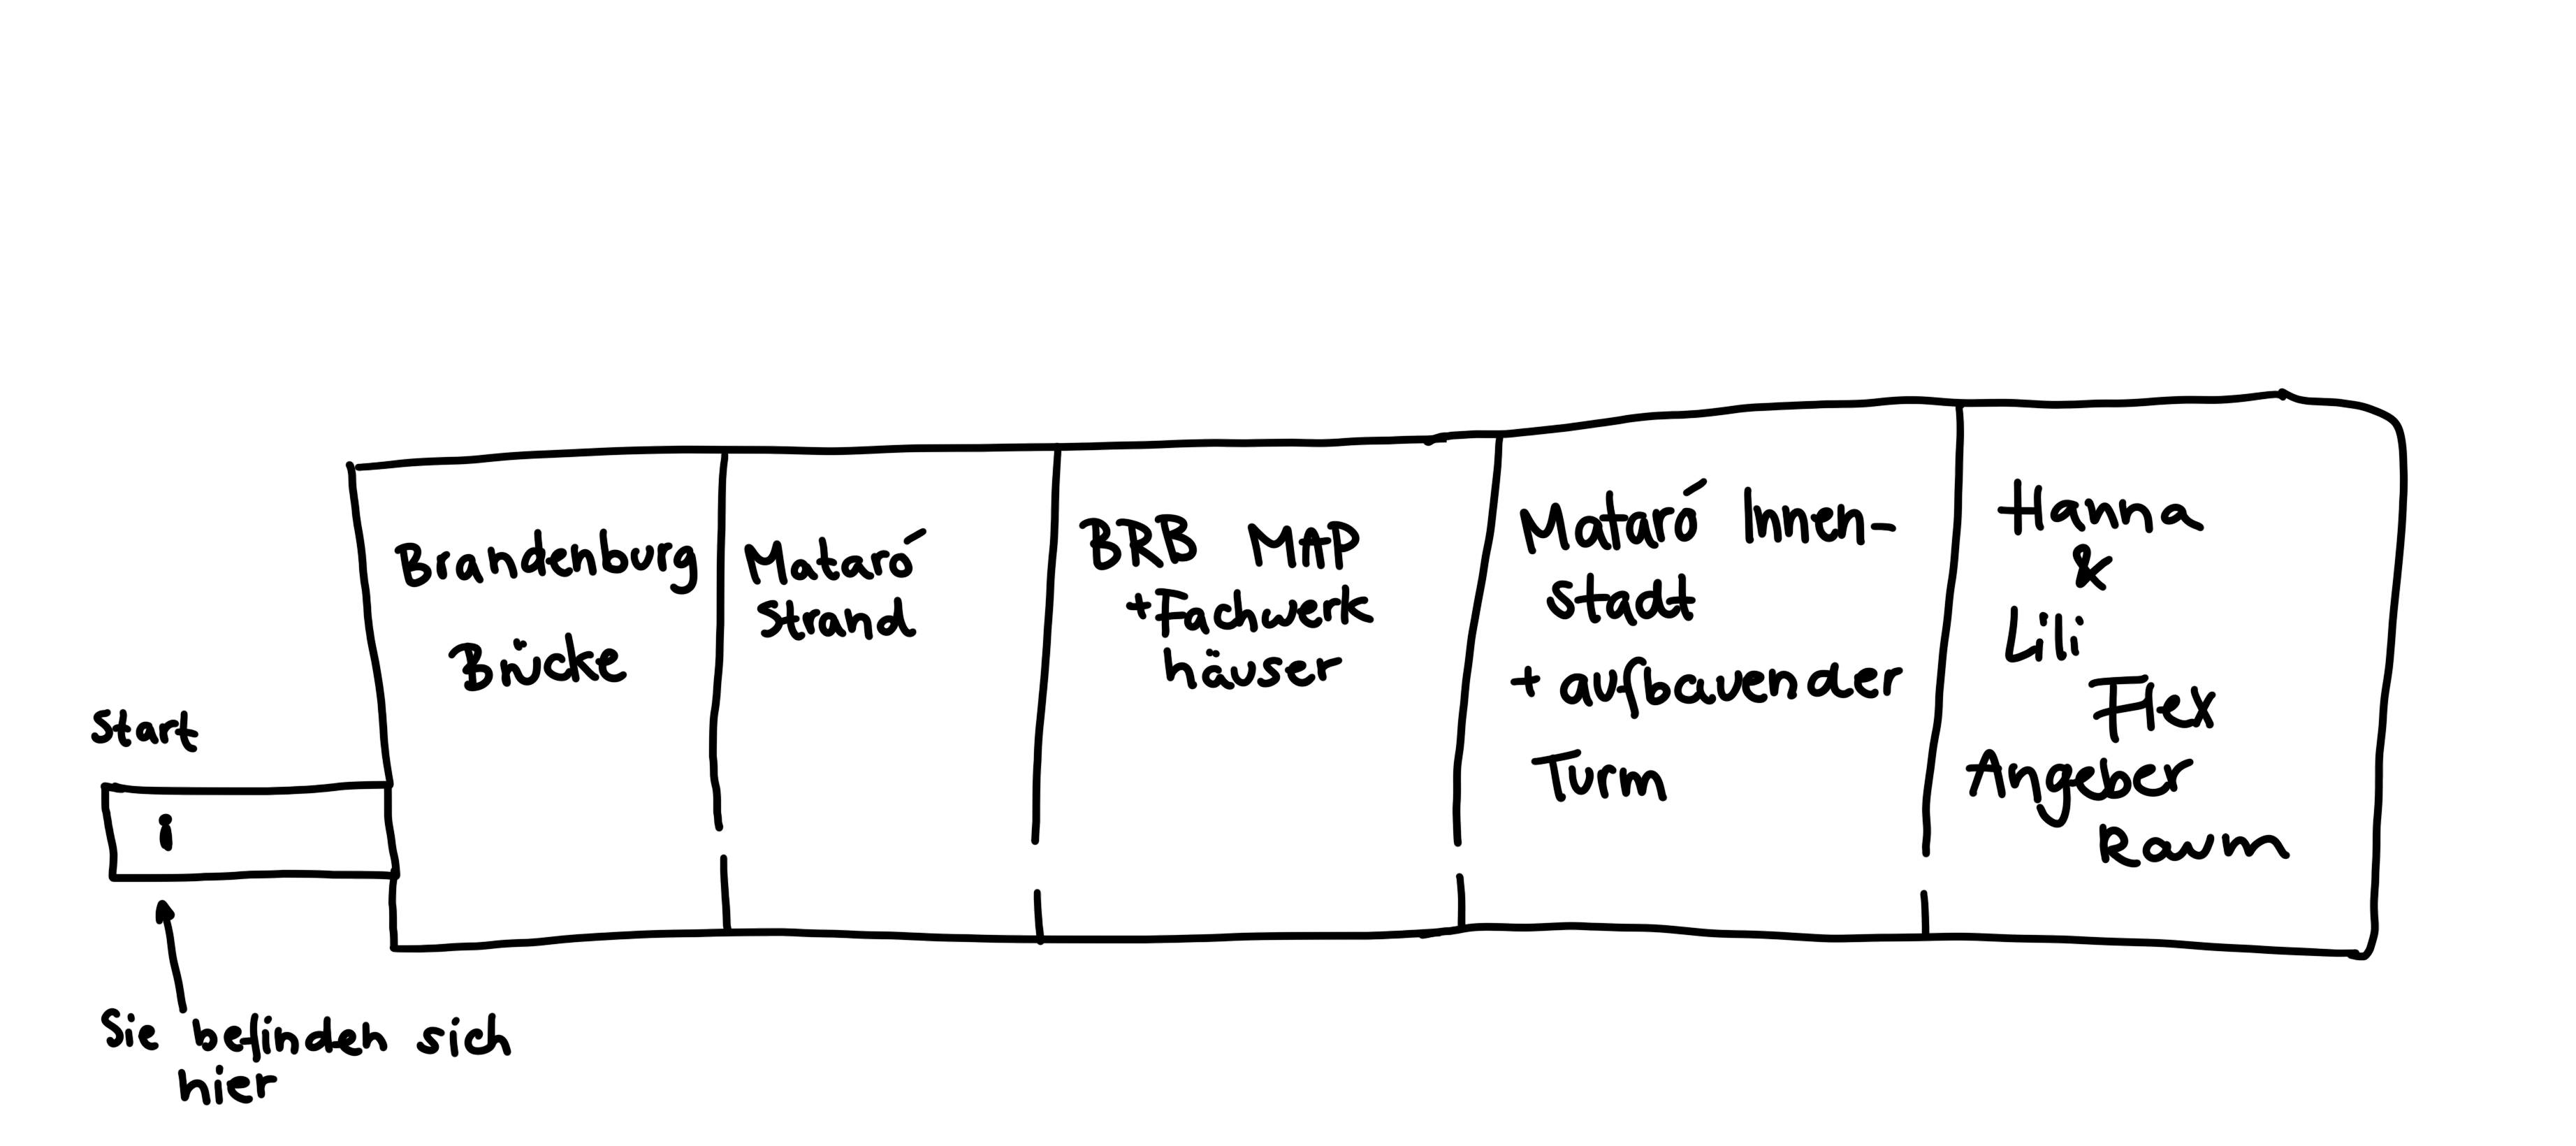 Start
i
Sie befinden sich
hier
Brandenburg
Brücke
Mataró
Strand
BRB MAP
+Fachwerk
häuser
Mataró Innen-
stadt
+ aufbauender
Turm
Hanna
&
Lili
Flex
Angeber
Raum